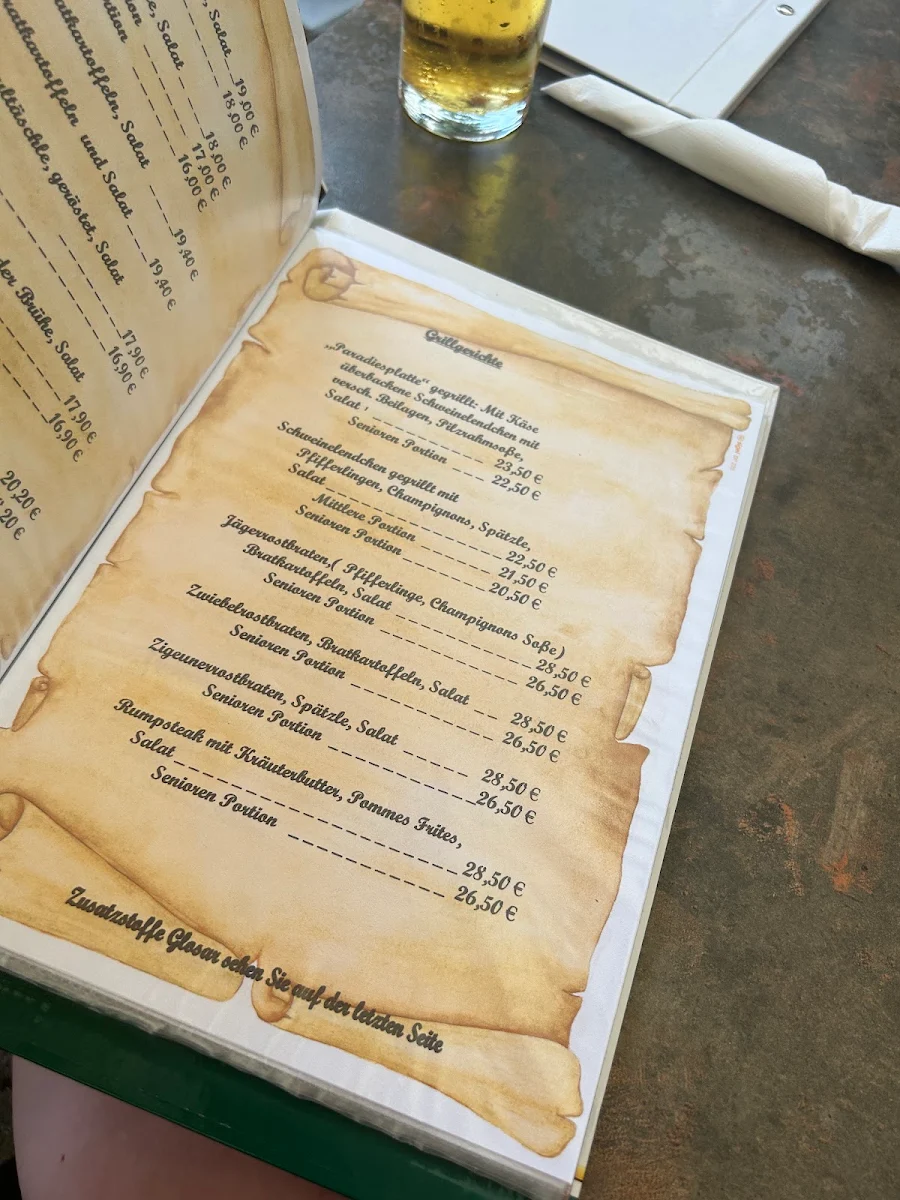 Salat 19,00 €
18,00 €
Salat 18,00 €
17,00 €
16,00 €
Bratkartoffeln, Salat 19,40 €
Bratkartoffeln und Salat 19,40 €
geröstet, Salat 17,90 €
16,90 €
der Brühe, Salat 17,90 €
16,90 €
20,20 €
Grillgerichte
„Paradiesplatte“ gegrillt: Mit Käse
überbackene Schweinelendchen mit
versch. Beilagen, Pilzrahmsoße,
Salat ' ---------------- 23,50 €
Senioren Portion ---- 22,50 €
Schweinelendchen gegrillt mit
Pfifferlingen, Champignons, Spätzle,
Salat ---------------------- 22,50 €
Mittlere Portion ---------- 21,50 €
Senioren Portion ---------- 20,50 €
Jägerrostbraten,( Pfifferlinge, Champignons Soße)
Bratkartoffeln, Salat --------------- 28,50 €
Senioren Portion ------------------ 26,50 €
Zwiebelrostbraten, Bratkartoffeln, Salat --- 28,50 €
Senioren Portion ------------------ 26,50 €
Zigeunerrostbraten, Spätzle, Salat -------- 28,50 €
Senioren Portion ------------------ 26,50 €
Rumpsteak mit Kräuterbutter, Pommes Frites,
Salat ------------------------------ 28,50 €
Senioren Portion ------------------ 26,50 €
Zusatzstoffe Glosar sehen Sie auf der letzten Seite